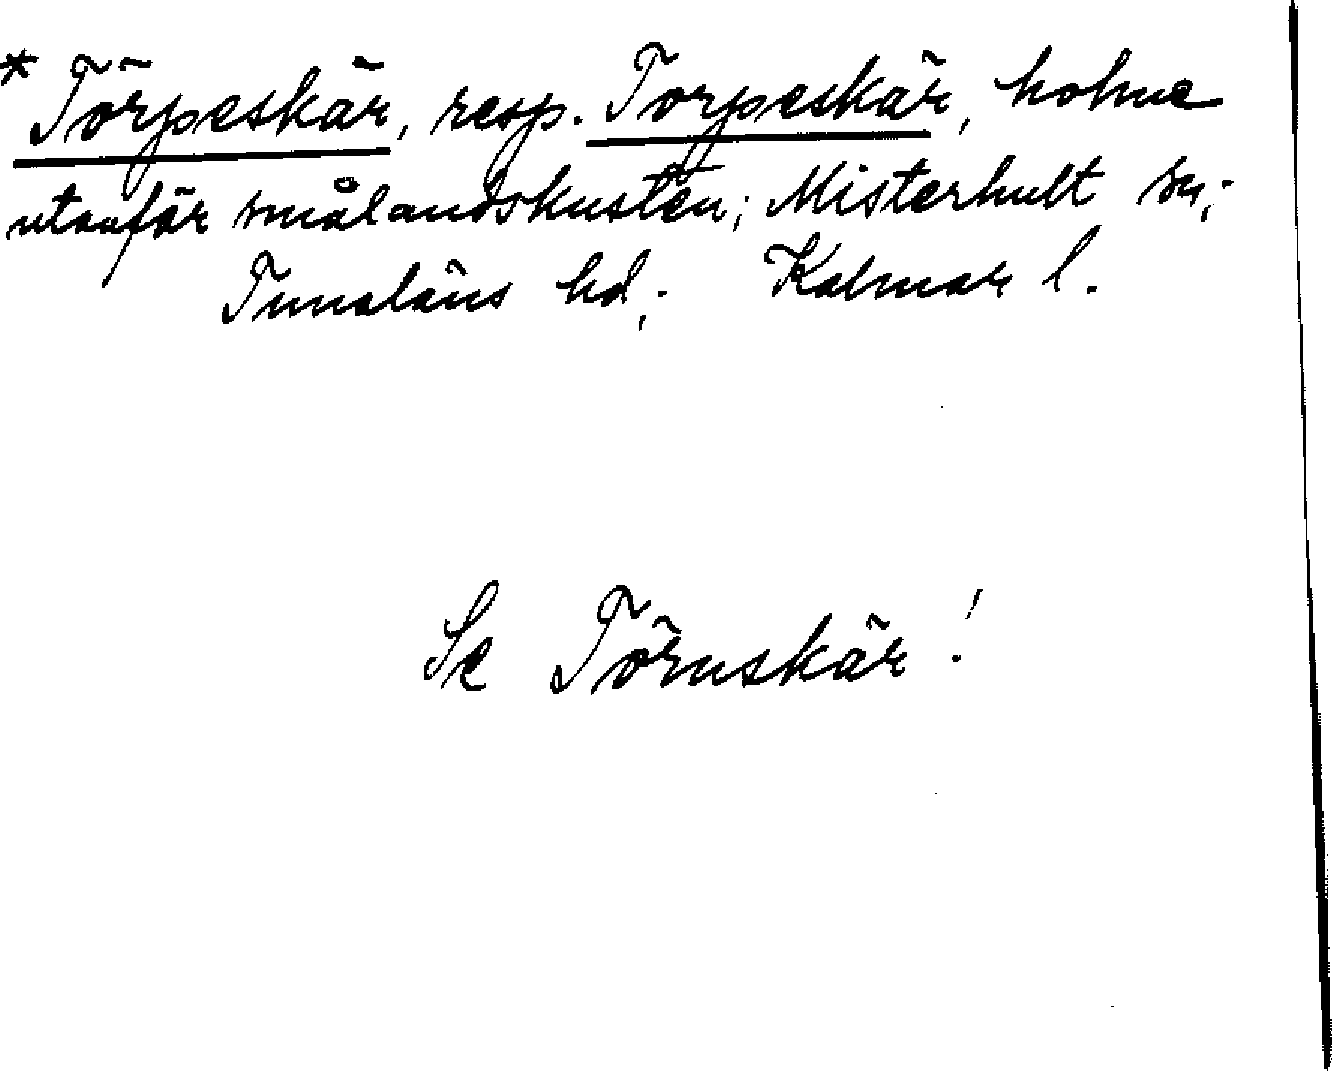 * Törpeskär, resp. Torpeskär, holme
utanför smålandskusten; Misterhult sn;
Tunaläns hd; Kalmar l.
Se Törnskär!